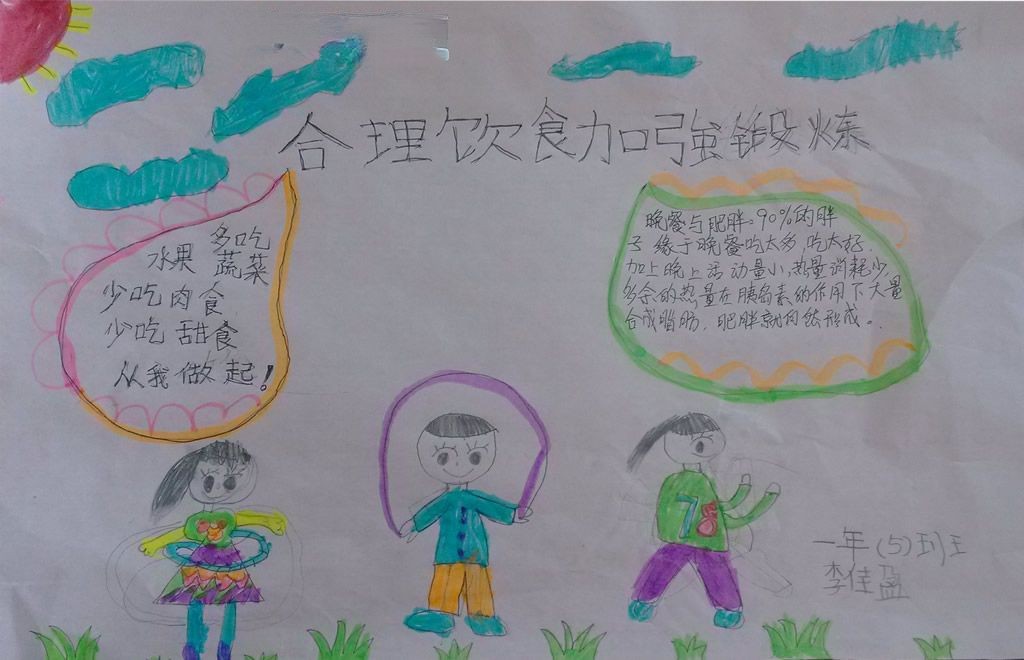 合理饮食加强锻炼
多吃
水果 蔬菜
少吃肉食
少吃甜食
从我做起!
晚餐与肥胖。90%的胖
子缘于晚餐吃太多,吃太好,
加上晚上活动量小,热量消耗少,
多余的热量在胰岛素的作用下大量
合成脂肪,肥胖就自然形成。
78
一年(5)班
李佳盈